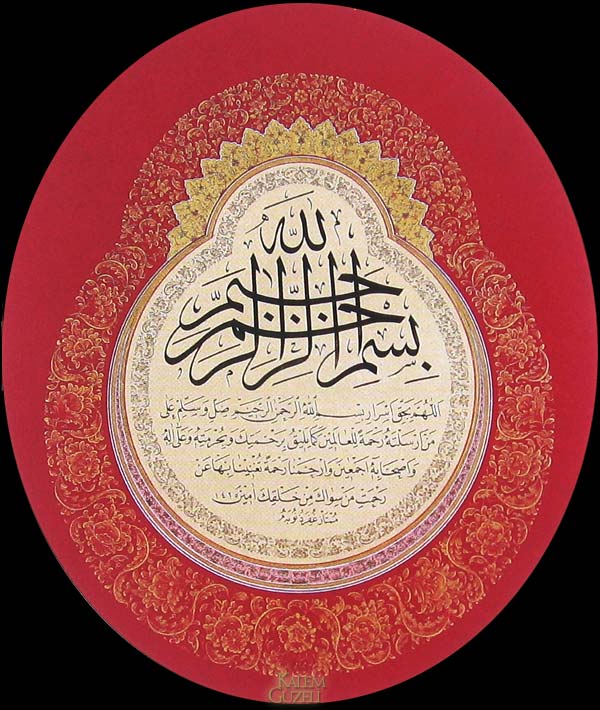 بِسْمِ اللَّهِ الرَّحْمٰنِ الرَّحِيمِ
اللهم بحق اسرار بسم الله الرحمن الرحيم صل وسلم على
من ارسلته رحمة للعالمين كما يليق برحمتك وبحرمته وعلى اله
واصحابه اجمعين وارحمنا رحمة تغنينا بها عن
رحمة من سواك من خلقك امين
KALEM
GUZELI